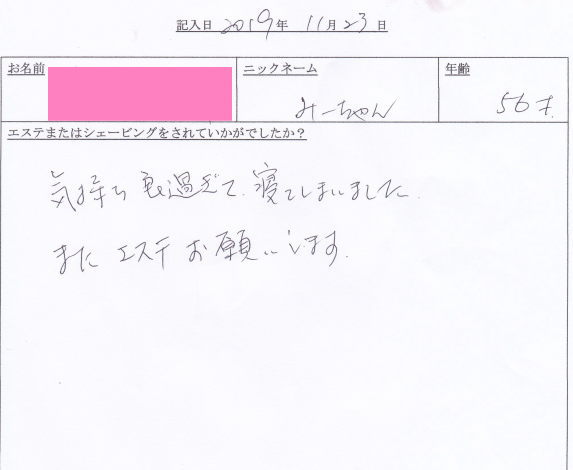 記入日 2019年 11月23日
お名前 ニックネーム 年齢
みーちゃん 56才
エステまたはシェービングをされていかがでしたか？
気持ち良過ぎて、寝てしまいました。
またエステお願いします。